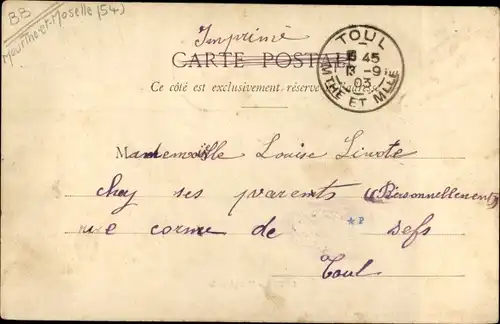 BB
Meurthe-et-Moselle (54)
Imprimé
CARTE POSTALE
Ce côté est exclusivement réservé à l'adresse
TOUL
45
13 -9
03
MTHE ET MLLE
Mademoiselle Louise Linote
chez ses parents (Personnellement)
rue corne de cefs
Toul